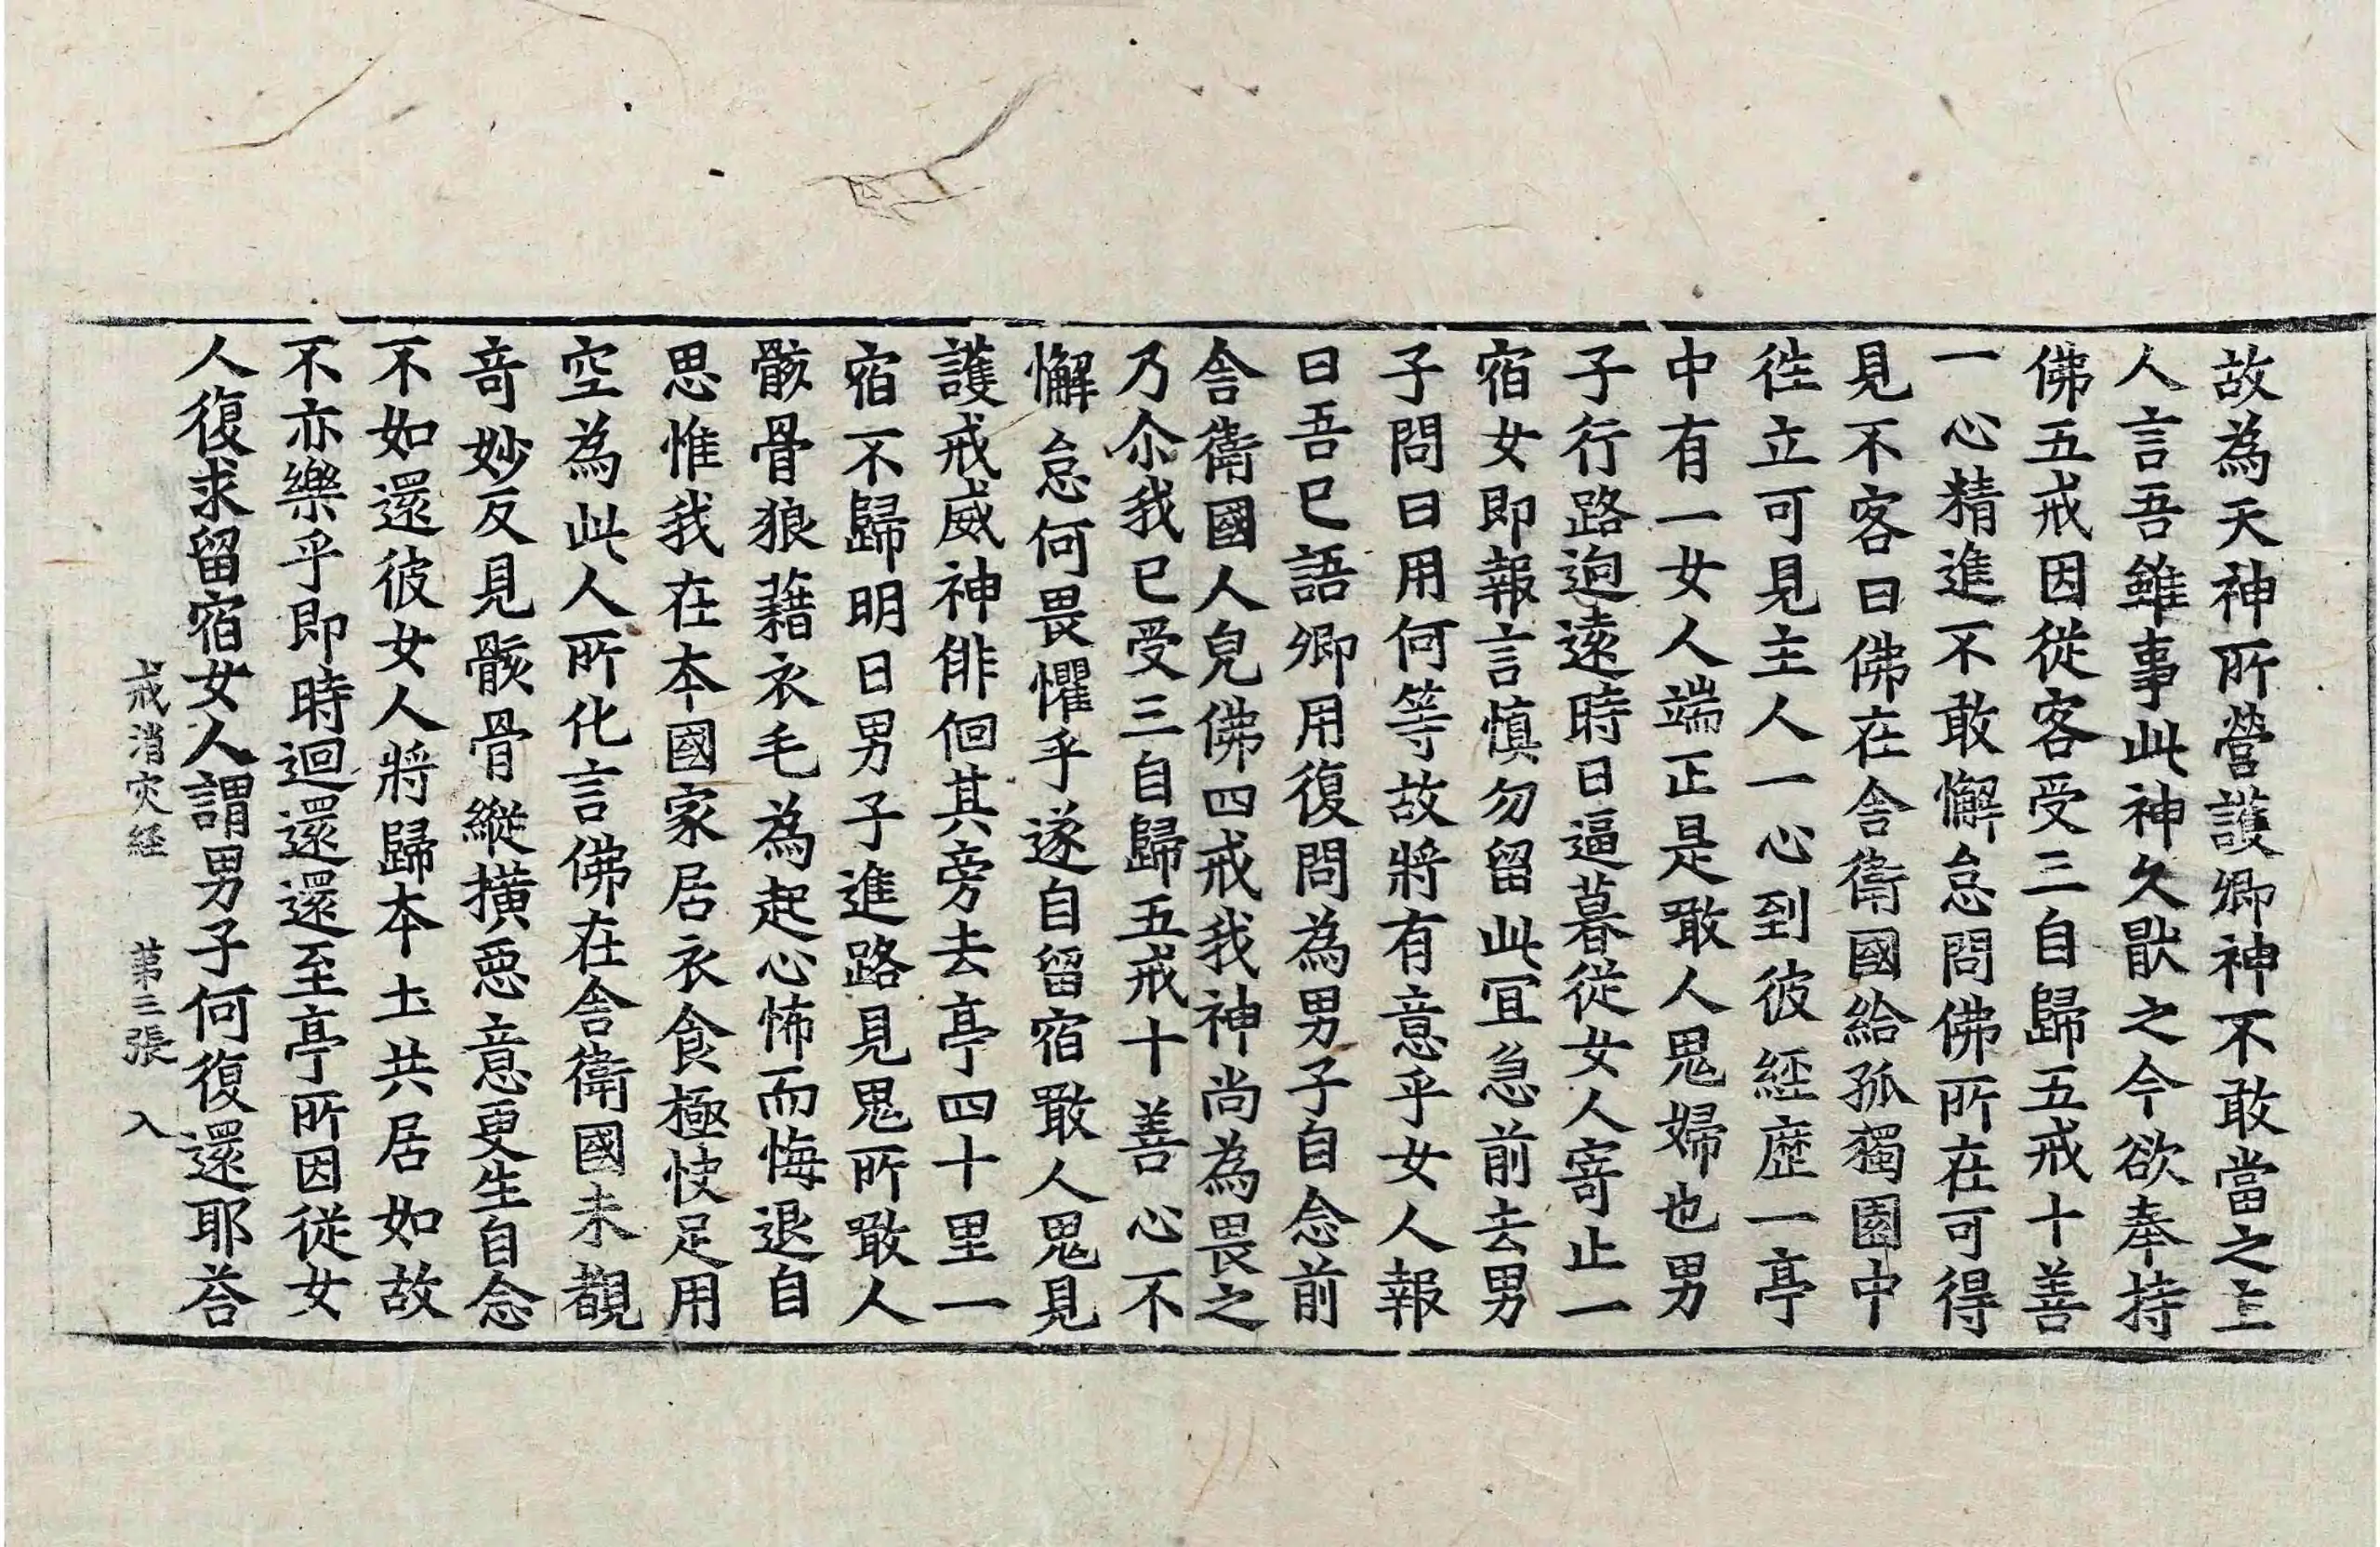 故為天神所營護卿神不敢當之主
人言吾雖事此神久猒之今欲奉持
佛五戒因從客受三自歸五戒十善
一心精進不敢懈怠問佛所在可得
見不客曰佛在舎衛國給孤獨園中
徃立可見主人一心到彼經歷一亭
中有一女人端正是噉人鬼婦也男
子行路逈遠時日逼暮從女人寄止一
宿女即報言慎勿留此冝急前去男
子問曰用何等故將有意乎女人報
曰吾已語卿用復問為男子自念前
舎衛國人皃佛四戒我神尚為畏之
乃尒我已受三自歸五戒十善心不
懈怠何畏懼乎遂自留宿噉人鬼見
護戒威神俳佪其旁去亭四十里一
宿不歸明日男子進路見鬼所噉人
骸骨狼藉衣毛為起心怖而悔退自
思惟我在本國家居衣食極快足用
空為此人所化言佛在舎衛國未覩
竒妙反見骸骨縱撗惡意更生自念
不如還彼女人將歸本土共居如故
不亦樂乎即時迴還還至亭所因從女
人復求留宿女人謂男子何復還耶荅
戒消灾経 第三張 入